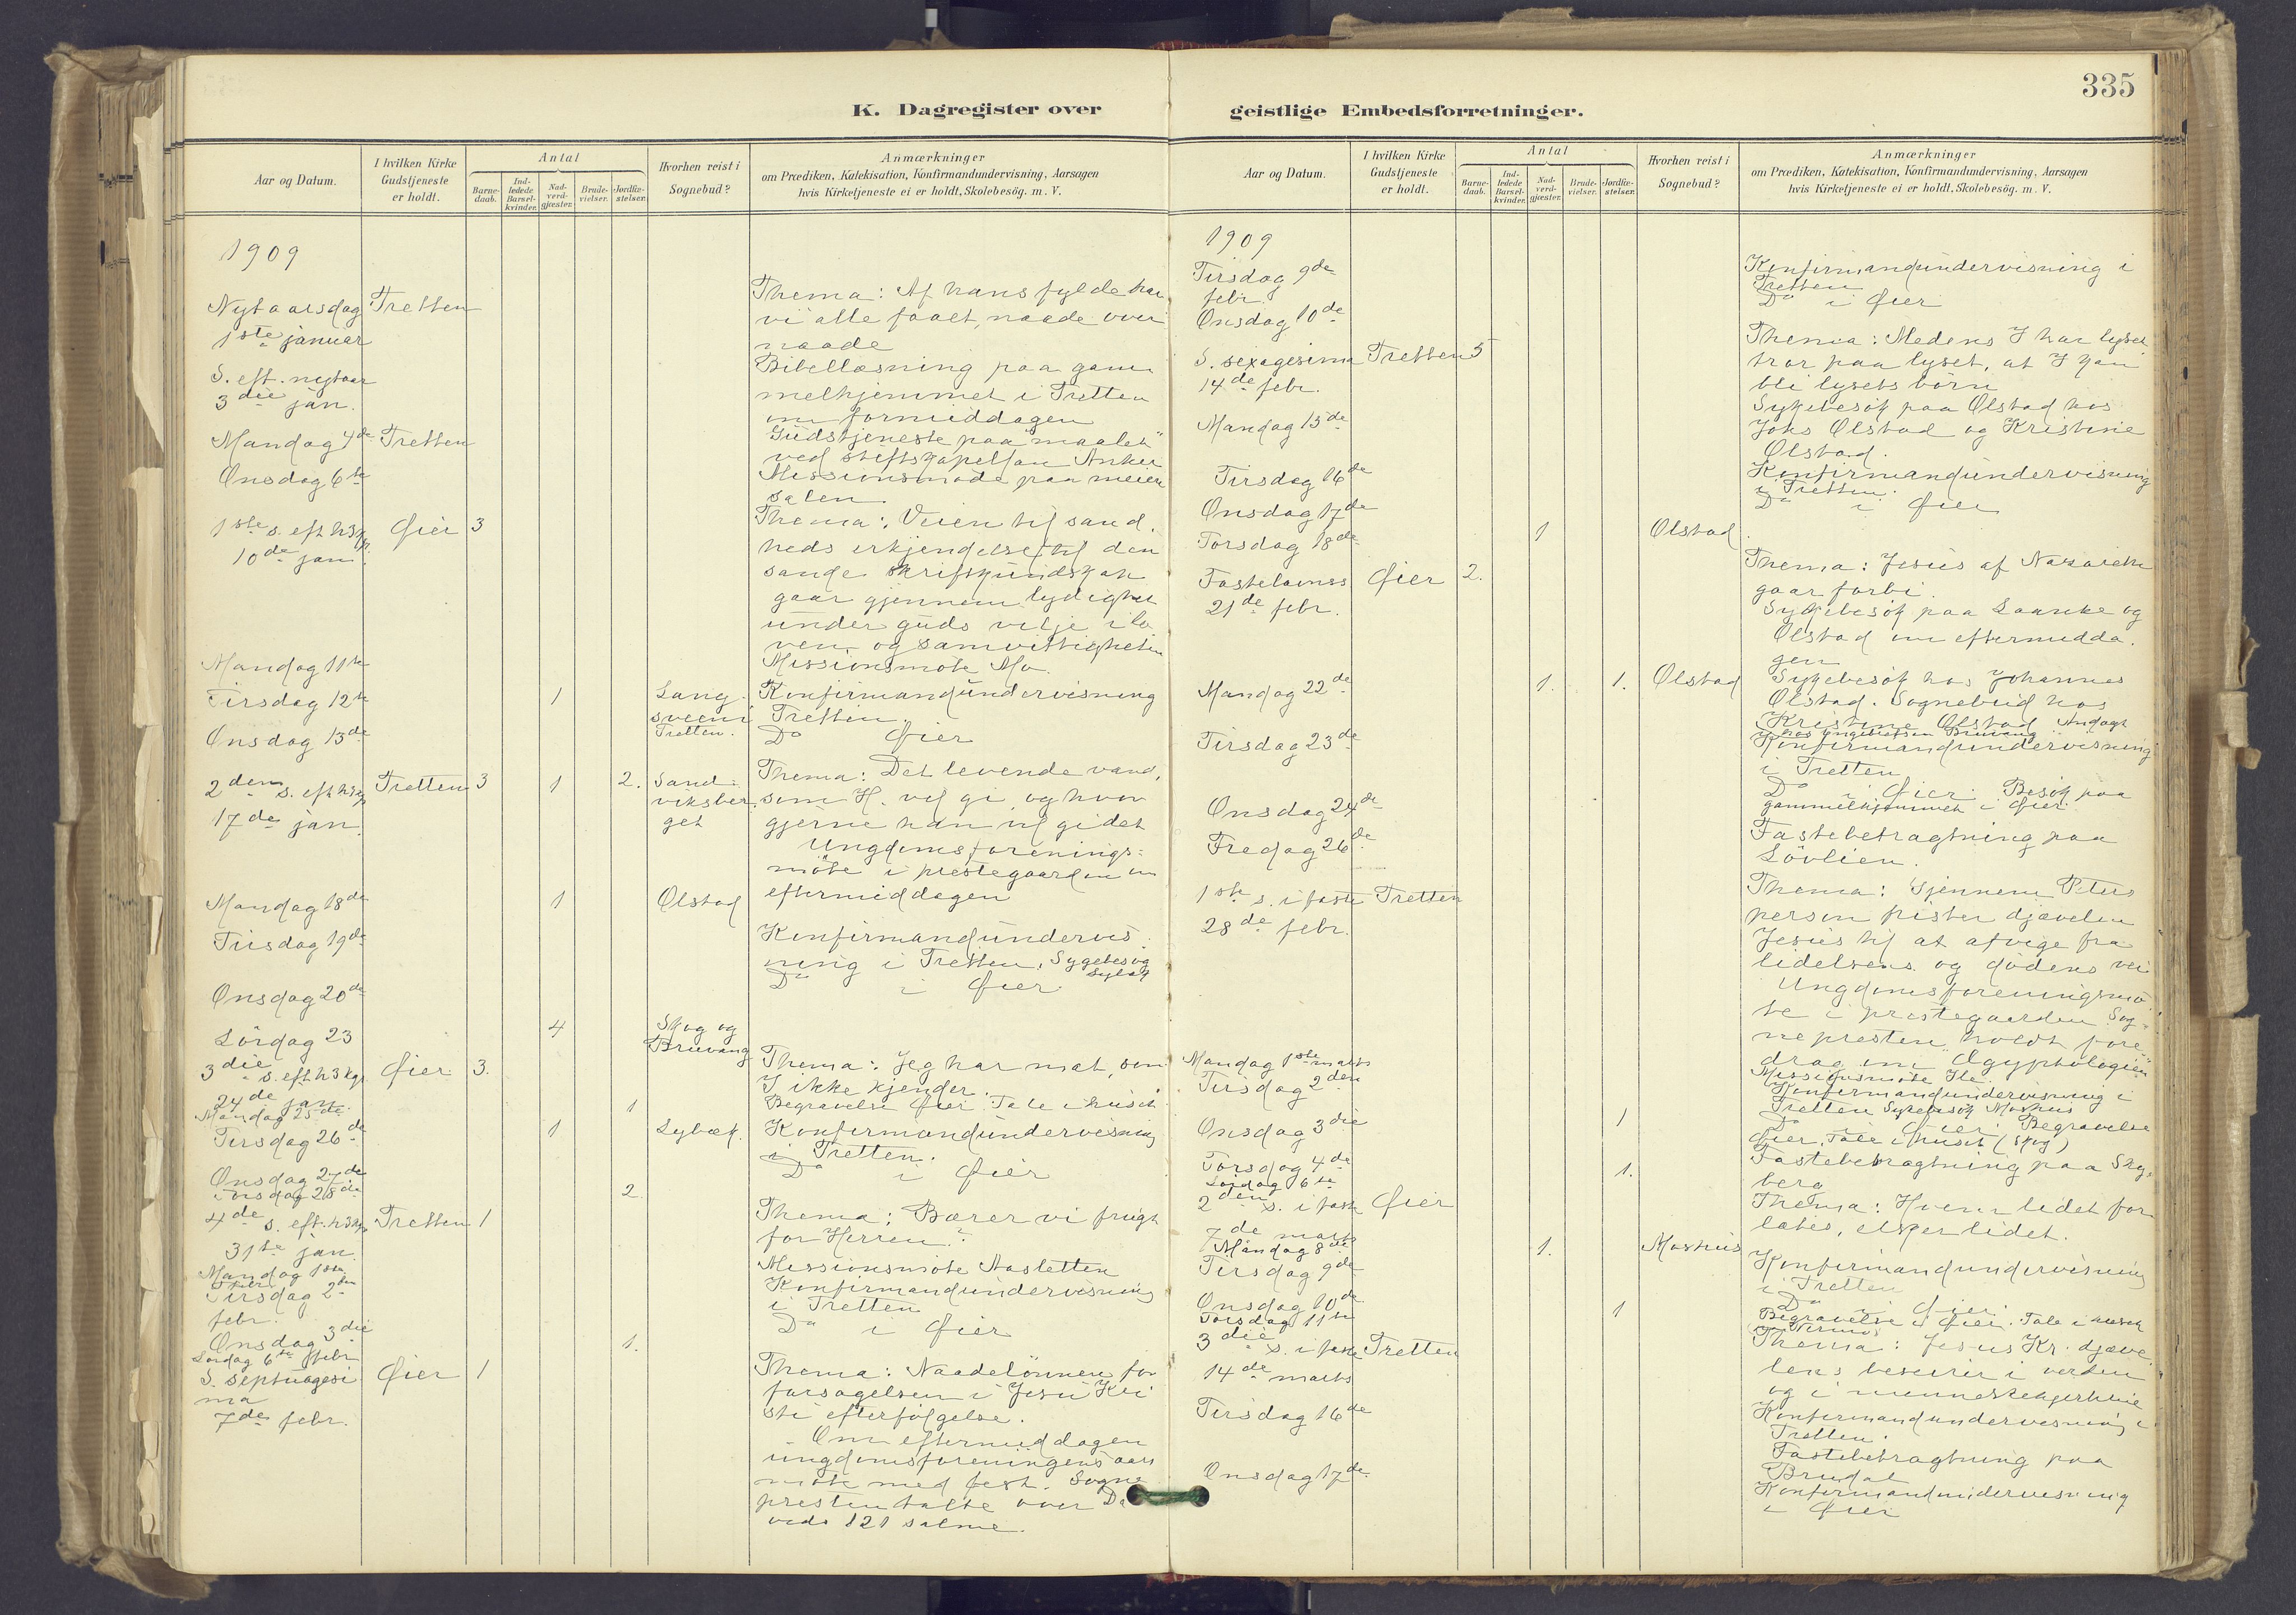 335
K. Dagregister over
geistlige Embedsforretninger.
Aar og Datum.
I hvilken Kirke
Gudstjeneste
er holdt.
Antal
Barne-
daab.
Ind-
ledede
Barsel-
kvinder.
Nad-
verd-
gjæster.
Brude-
vielser.
Jordfæ-
stelser.
Hvorhen reist i
Sognebud?
Anmærkninger
om Prædiken, Katekisation, Konfirmandundervisning, Aarsagen
hvis Kirketjeneste ei er holdt, Skolebesög. m. V.
1909
Nytaarsdag Tretten
1ste januar
Thema: Af hans fylde har
vi alle faaet, naade over
naade
S. eft. nytaar
3die jan.
Bibellæsning paa gam-
melhjemmet i Tretten
om formiddagen
Mandag 4de Tretten
Gudstjeneste paa "maalet"
ved stiftskapellan Anker
Onsdag 6te
Missionsmøde paa meieri
salen.
1ste s. eft. h3kgr. Øier 3
10de jan.
Thema: Veien til sand-
heds erkjendelse, til den
sande skriftkundskap
gaar gjennem lydighet
under guds vilje i lo-
ven og samvittigheten
Mandag 11te
Missionsmøte Mo
Tirsdag 12te 1 Lang-
sveen i
Tretten.
Konfirmandundervisning
Tretten.
Onsdag 13de
Do Øier
2den s. eft. h3kgr Tretten 3 1 2. Sand-
viksber-
get
17de jan.
Thema: Det levende vand,
som H. vil gi, og hvor
gjerne han vil gi det
Ungdomsforenings-
møte i prestegaarden om
eftermiddagen
Mandag 18de 1 Olstad
Tirsdag 19de
Konfirmandundervis-
ning i Tretten. Sygebesøg
Lybæk
Onsdag 20de
Do i Øier
Lördag 23 4 Skog og
Bruvang
3die s. eft. h3kgr. Øier 3.
24de jan.
Thema: Jeg har mat, som
I ikke kjender.
Mandag 25de 1
Begravelse Øier. Tale i huset
Tirsdag 26de 1 Lybæk.
Konfirmandundervisning
i Tretten.
Onsdag 27de
Do i Øier
Torsdag 28de 2
4de s. eft. h3kgr Tretten 1
31te jan.
Thema: Bærer vi frugt
for Herren?
Mandag 1ste
febr.
Missionsmøte Aasletten
Tirsdag 2den
febr.
Konfirmandundervisning
i Tretten
Onsdag 3die
Do i Øier
Lørdag 6te febr 1.
S. septuagesi- Øier 1
ma
7de febr.
Thema: Naadelönnen for
forsagelsen i Jesu Kri-
sti efterfölgelse.
Om eftermiddagen
ungdomsforeningens aars-
møte med fest. Sogne-
presten talte over Da-
vids 121 salme.
Aar og Datum.
I hvilken Kirke
Gudstjeneste
er holdt.
Antal
Barne-
daab.
Ind-
ledede
Barsel-
kvinder.
Nad-
verd-
gjæster.
Brude-
vielser.
Jordfæ-
stelser.
Hvorhen reist i
Sognebud?
Anmærkninger
om Prædiken, Katekisation, Konfirmandundervisning, Aarsagen
hvis Kirketjeneste ei er holdt, Skolebesög. m. V.
1909
Tirsdag 9de
febr.
Konfirmandundervisning i
Tretten
Onsdag 10de
Do i Øier
S. sexagesima Tretten 5
14de febr.
Thema: Medens I har lyset
tror paa lyset, at I kan
bli lysets børn
Mandag 15de
Sykebesøk paa Olstad hos
Johs Olstad og Kristine
Olstad.
Tirsdag 16de
Konfirmandundervisning
i Tretten.
Onsdag 17de
Do i Øier
Torsdag 18de 1 Olstad
Fastelavnss. Øier 2.
21de febr.
Thema: Jesus af Nazareth
gaar forbi.
Sykebesøk paa Laanke og
Olstad om eftermidda-
gen
Mandag 22de 1. 1. Olstad
Sykebesøk hos Johannes
Olstad. Sognebud hos
Kristine Olstad. Andagt
hos Engebretsen Bruvang
Tirsdag 23de
Konfirmandundervisning
i Tretten
Onsdag 24de
Do i Øier. Besøk paa
gammelhjemmet i Øier.
Fredag 26de
Fastebetragtning paa
Lövlien.
1ste s. i faste Tretten
28de febr.
Thema: Gjennem Peters
person frister djævelen
Jesus til at afvige fra
lidelsens og dödens vei
Ungdomsforeningsmö-
te i prestegaarden. Sog-
nepresten holdt fore-
drag om Ægyptologien
Mandag 1ste marts
Missionsmøte Ile.
Tirsdag 2den
Konfirmandundervisning i
Tretten Sykebesøk Moshus
Onsdag 3die 1
Do i Øier. Begravelse
Øier. Tale i huset (Skog)
Torsdag 4de
Fastebetragtning paa Sky-
berg
Lördag 6te 1.
2den s. i faste Øier
7de marts
Thema: Hvem lidet for-
lates, elsker lidet.
Mandag 8de 1. Moshus
Tirsdag 9de
Konfirmandundervisning
i Tretten
Onsdag 10de
Do i Øier.
Torsdag 11te 1
Begravelse i Øier. Tale i huset
3die s. i faste Tretten
14de marts
Thema: Jesus Kr. djæve-
lens beseirer i verden
og i menneskehjerterne
Tirsdag 16de
Konfirmandundervisning i
Tretten.
Fastebetragtning paa
Brudal
Onsdag 17de
Konfirmandundervisning
i Øier